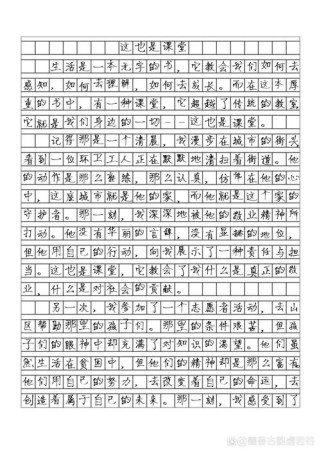 这也是课堂
生活是一本无字的书，它教会我们如何去
感知，如何去理解，如何去成长。而在这本厚
重的书中，有一种课堂，它超越了传统的教室
它就是我们身边的一切——这也是课堂。
记得那是一个清晨，我漫步在城市的街头
看到一位环卫工人正在默默地清扫着街道。他
的动作是那么熟练，那么认真，仿佛在他的心
中，这座城市就是他的家，而他就是这个家的
守护者。那一刻，我深深地被他的敬业精神所
打动。他没有华丽的言辞，没有显赫的地位，
但他用自己的行动，向我展示了一种责任与担
当。这也是课堂，它教会了我什么是真正的敬
业，什么是对社会的贡献。
另一次，我参加了一个志愿者活动，去山
区帮助那里的孩子们。那里的条件艰苦，但孩
子们的眼神中却充满了对知识的渴望。他们虽
然生活在贫困中，但他们的精神却是那么富有
他们用自己的努力，去改变着自己的命运，去
创造着属于自己的未来。那一刻，我感受到了